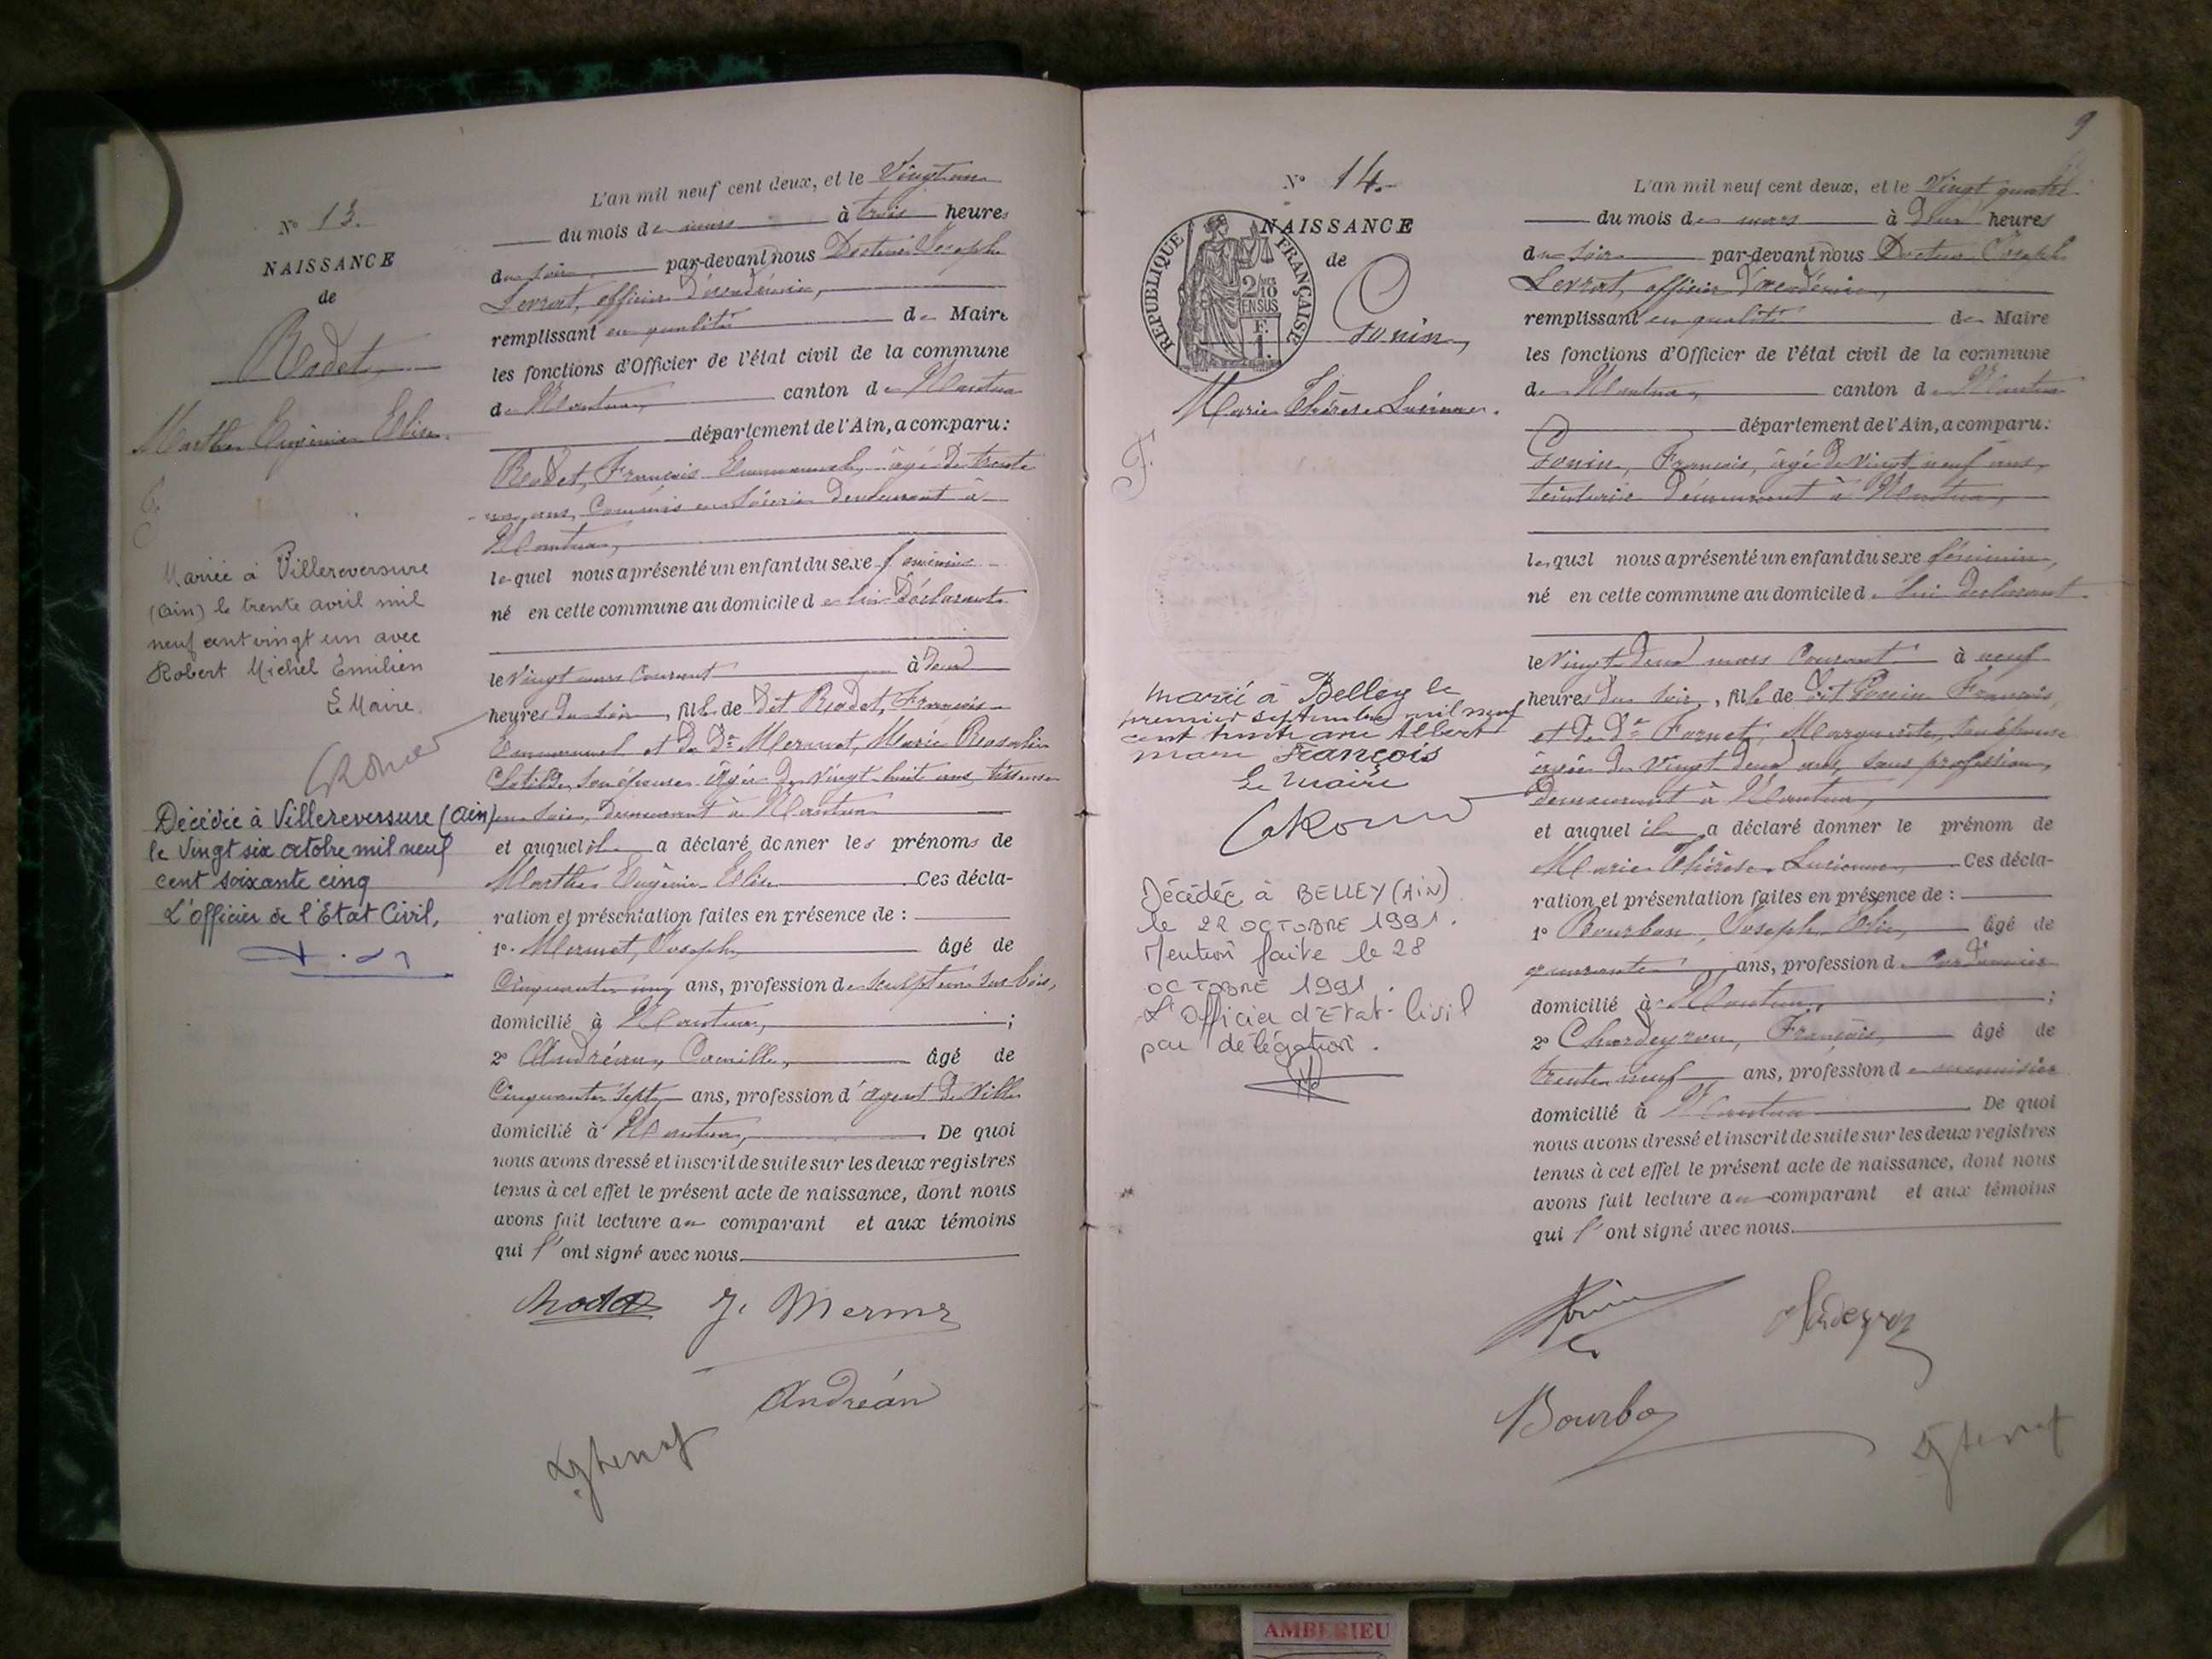 N° 13.
NAISSANCE
de
Rodet,
Marthe Eugénie Elise.
Mariée à Villereversure
(Ain) le trente avril mil
neuf cent vingt un avec
Robert Michel Emilien
Le Maire.
Décédée à Villereversure (Ain)
le Vingt six octobre mil neuf
cent soixante cinq
L'officier de l'Etat Civil,
L'an mil neuf cent deux, et le Vingt un
du mois de mars à trois heures
du soir, par-devant nous Docteur Joseph
Levrat, officier d'académie,
remplissant en qualité de Maire
les fonctions d'Officier de l'état civil de la commune
de Nantua, canton de Nantua
département de l'Ain, a comparu:
Rodet, François Emmanuel, âgé de trente
un ans, demeurant à
Nantua,
lequel nous a présenté un enfant du sexe féminin
né en cette commune au domicile de lui déclarant
le Vingt mars Courant à deux
heures du soir, fille de dit Rodet, François
Emmanuel et de De Mermet, Marie Rosalie
Clotilde, son épouse âgée de vingt-huit ans, tisseuse
en soie, demeurant à Nantua
et auquel il a déclaré donner les prénoms de
Marthe Eugénie Elise Ces décla-
ration et présentation faites en présence de :
1° Mermet, Joseph, âgé de
Cinquante cinq ans, profession de sculpteur sur bois,
domicilié à Nantua, ;
2° Andréan, Camille, âgé de
Cinquante sept ans, profession d'agent de Ville
domicilié à Nantua, . De quoi
nous avons dressé et inscrit de suite sur les deux registres
tenus à cet effet le présent acte de naissance, dont nous
avons fait lecture au comparant et aux témoins
qui l'ont signé avec nous.
Rodet J. Mermet
Andréan
9
N° 14.
NAISSANCE
de
RÉPUBLIQUE FRANÇAISE
2/10 EN SUS
F. 1.
Gonin,
Marie Thérèse Lucienne.
F.
marié à Belley le
premier septembre mil neuf
cent trente avec Albert
marie François
Le maire
Décédée à BELLEY (AIN)
le 22 OCTOBRE 1991.
Mention faite le 28
OCTOBRE 1991.
L'Officier d'Etat-Civil
par délégation.
L'an mil neuf cent deux, et le Vingt quatre
du mois de mars à deux heures
du soir par-devant nous Docteur Joseph
Levrat, officier d'académie,
remplissant en qualité de Maire
les fonctions d'Officier de l'état civil de la commune
de Nantua, canton de Nantua
département de l'Ain, a comparu:
Gonin, François, âgé de vingt neuf ans,
teinturier demeurant à Nantua,
lequel nous a présenté un enfant du sexe féminin,
né en cette commune au domicile de lui déclarant.
le Vingt deux mars Courant à neuf
heures du soir, fille de dit Gonin François,
et de De Fornet, Marguerite, son épouse
âgée de vingt deux ans, sans profession,
demeurant à Nantua,
et auquel il a déclaré donner le prénom de
Marie Thérèse Lucienne, Ces décla-
ration et présentation faites en présence de :
1° Bourbon, Joseph Elie, âgé de
quarante ans, profession de Cordonnier
domicilié à Nantua, ;
2° Chardeyron, François, âgé de
trente neuf ans, profession de menuisier
domicilié à Nantua De quoi
nous avons dressé et inscrit de suite sur les deux registres
tenus à cet effet le présent acte de naissance, dont nous
avons fait lecture au comparant et aux témoins
qui l'ont signé avec nous.
Gonin Chardeyron
Bourbon
AMBERIEU